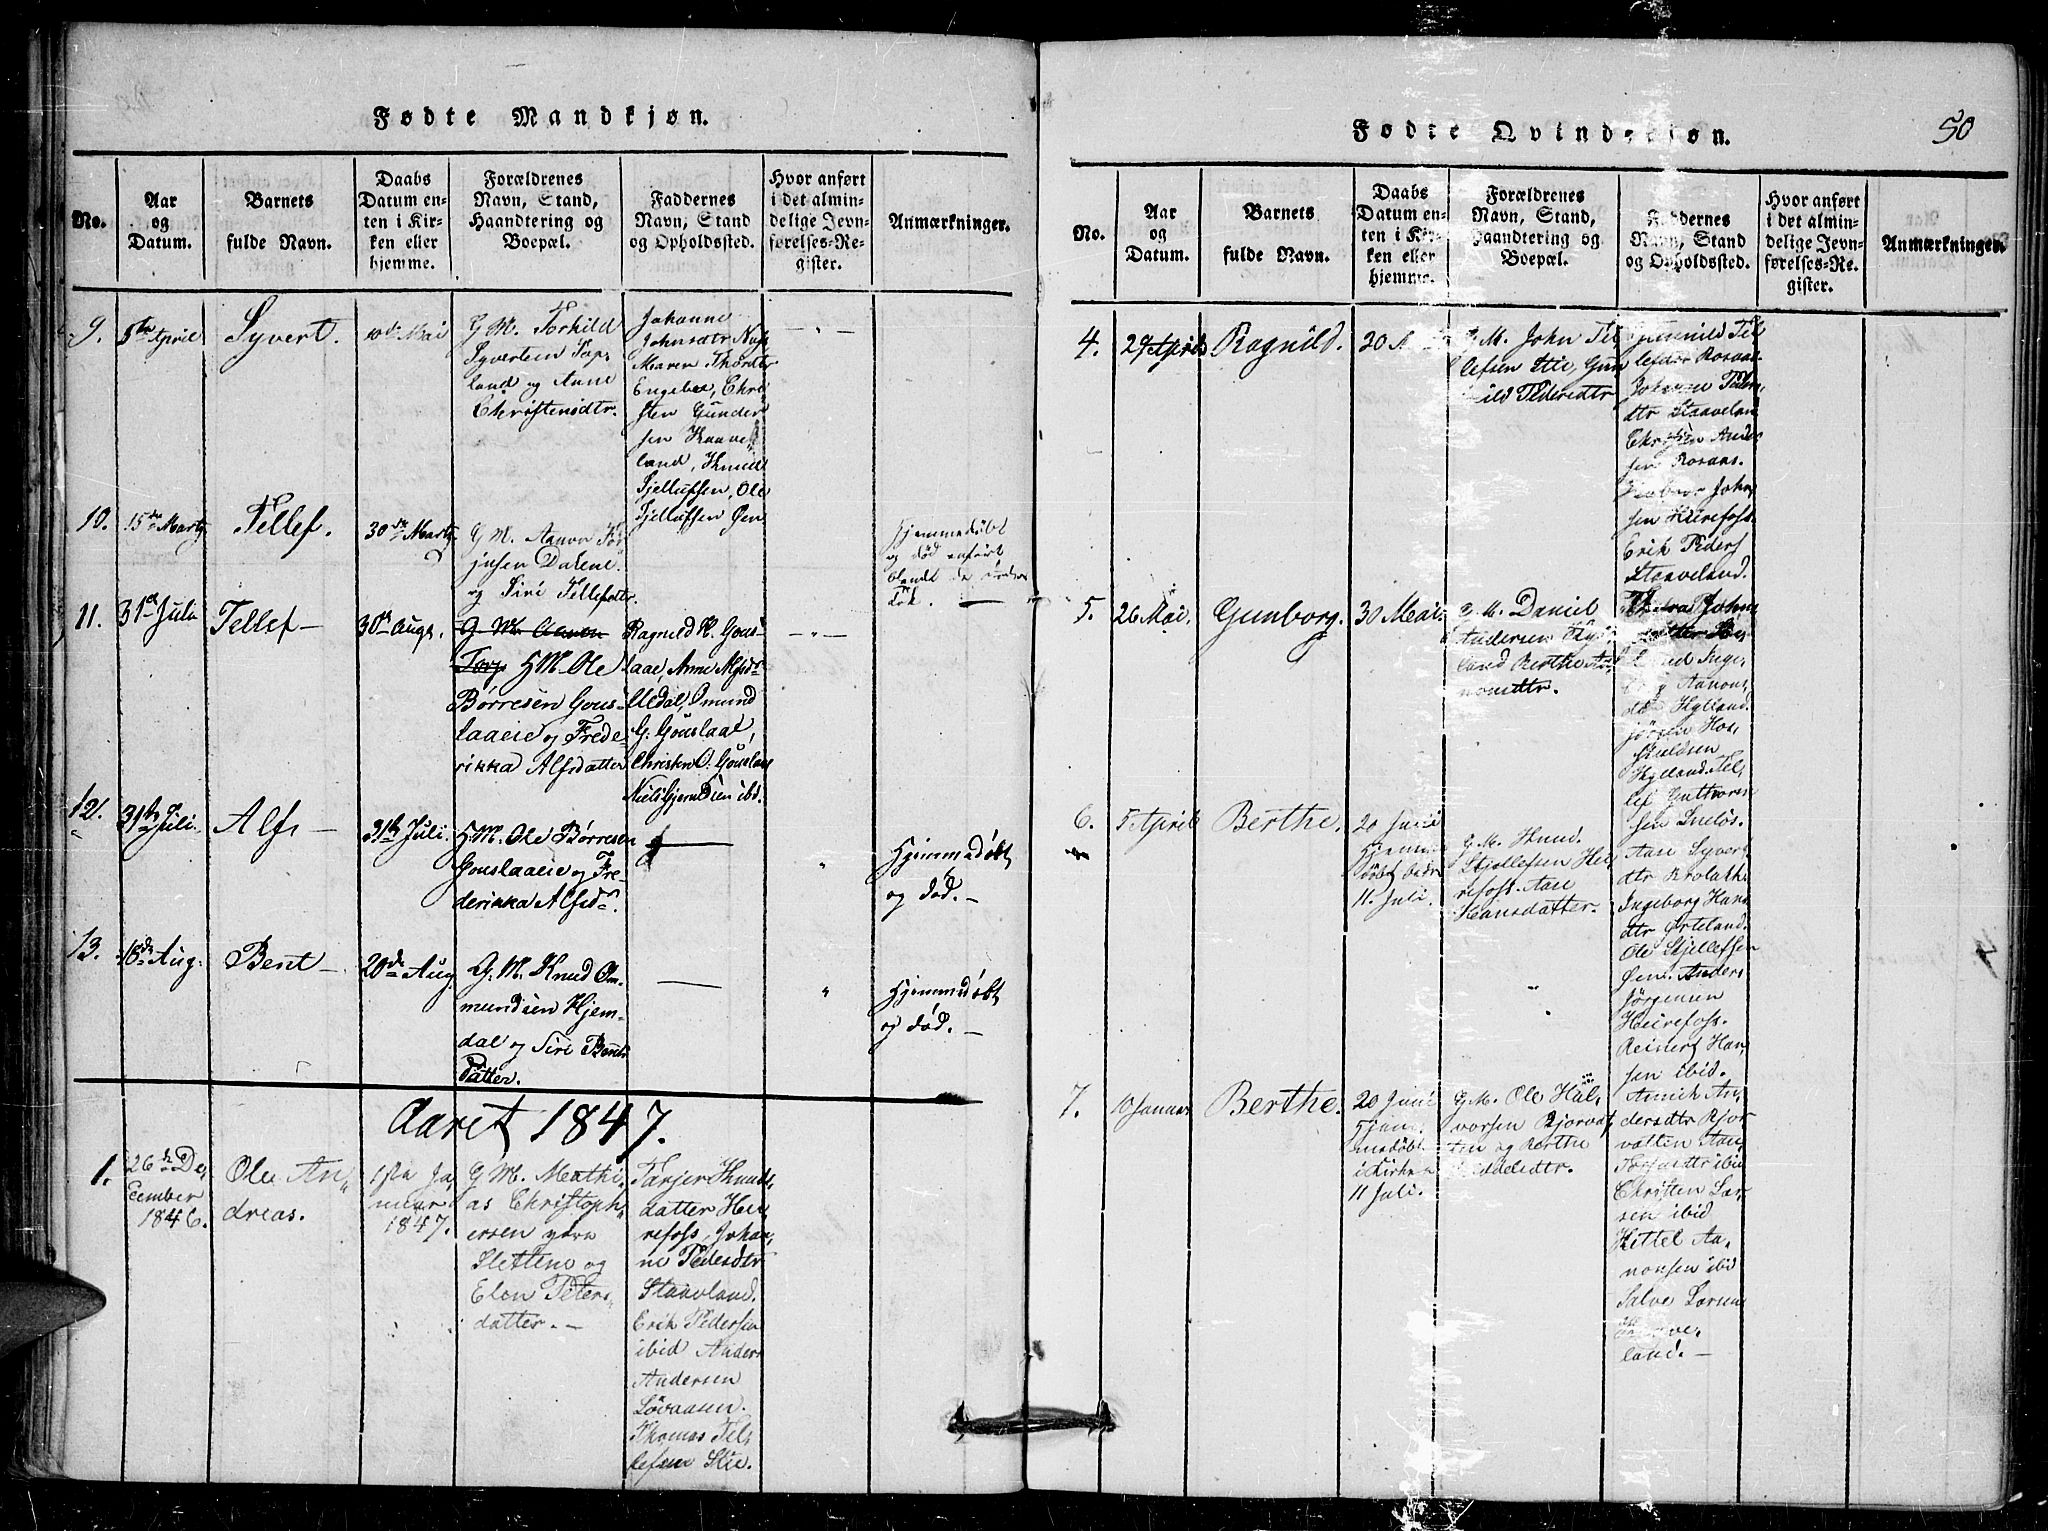 Fødte Mandkjøn.
No.
Aar
og
Datum.
Barnets
fulde Navn.
Daabs
Datum en-
ten i Kir-
ken eller
hjemme.
Forældrenes
Navn, Stand,
Haandtering og
Boepæl.
Faddernes
Navn, Stand
og Opholdssted.
Hvor anført
i det almin-
delige Jevn-
førelses-Re-
gister.
Anmærkninger.
9.
April
Syvert.
10de Mai
G. M. Torhild
Syvertsen
land og Anne
Christensdtr.
Johanne
Johnsdtr
Maren Thordtr
Engebe, Chri
sten Gunder
sen Haave
land, Knud
Sjellufsen, Ole
Tjellufsen Øen
10.
15de Marty
Tellef.
30de Marty.
G M. Aanon Tor
jusen Dalene
og Siri Tellefsdtr.
Hjemmedøbt
og død anført
blandt de
11.
31te Juli
Tellef –
30te Augs.
G M. Aanon
Torj HM. Ole
Børresen Gous-
laaeie og Frede-
rikka Alfsdatter
Ragnild K. Gous-
laae, Anne Alfsdr
Uedal, Omund
G. Gouslaae,
Christen O. Gouslaae
Niels Gjermdsen ibd.
12.
31te Juli.
Alf –
31te Juli.
HM. Ole Børresen
Gouslaaeie og Fre-
derikka Alfsdr.
Hjemmedøbt
og død. –
13.
18de Aug.
Bent –
20de Aug
G. M. Knud Om-
mundsen Hjem-
dal og Siri Bents
datter.
Hjemmedøbt
og død. –
Aaret 1847.
1.
26de De,
cember
1846.
Ole An-
dreas.
1ste Ja,
nuar
1847.
G M. Mathi-
as Christoph-
ersen
Sletten og
Elen Peters,
datter. –
Tarjer Knuds,
datter Hei,
refoss, Johan,
ne Pedersdtr
Staaveland.
Erik Pedersen
ibid Anders
Andersen
Løvaasen.
Thomas Tel,
lefsen Stie.
Fødte Qvindekjøn.
50
No.
Aar
og
Datum.
Barnets
fulde Navn.
Daabs
Datum en-
ten i Kir-
ken eller
hjemme.
Forældrenes
Navn, Stand,
Haandtering og
Boepæl.
Faddernes
Navn, Stand
og Opholdssted.
Hvor anført
i det almin-
delige Jevn-
førelses-Re-
gister.
Anmærkninger.
4.
29 April
Ragnild.
G. M. John Tel
lefsen Stie, Gun
ild Pedersdtr
Gunnild Tel
lefsdtr Rosaas
Johanne Peders,
dtr Staavelan
Christen Ander
sen Rosaas.
John,
sen Heirefoss.
Erik Peders
Staaveland.
5.
26 Mai.
Gunborg.
30 Mai.
G M. Daniel
Andersen Hyl
land Berthe Aa
nonsdtr.
Johns
Inge,
borg Aanons,
dtr Hylland.
Jørgen Hos,
kuldsen
Hylland. Tel,
lef Guttorm
sen Sneløs.
6.
5 April
Berthe.
20 Juni
Hjemme
døbt
11. Juli.
G. M. Knud
Stjellefsen Hei
refoss. Aase
Hansdatter.
Aase Syvert
dtr
Ingeborg Hans
dtr Ørteland.
Ole Stjellefsen
Øen. Anders
Jørgensen
Heirefoss.
Reinert Han,
sen ibid.
7.
10 Januar
Berthe.
20 Juni
hjem,
medøbt
i Kirken
11 Juli.
G. M. Ole Hal,
vorsen Bjorvat
ten og Berthe
Anne An,
dersdtr Bjor
vatten Aan,
ibid
Christen Lar,
sen ibid
Kittel Aa,
nonsen ibid
Salve Larsen
Haave,
land. –